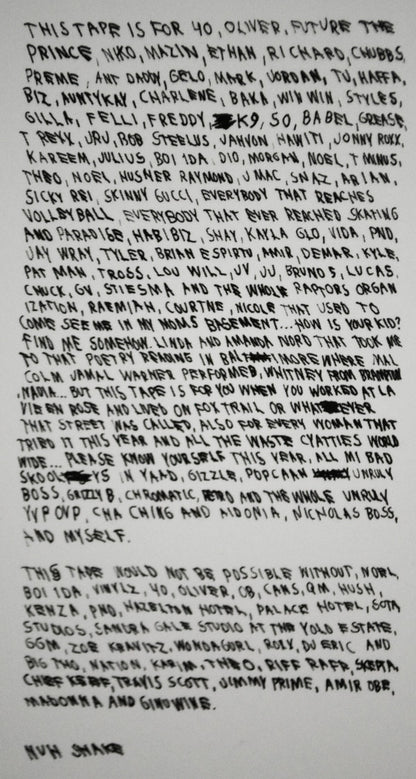 THIS TAPE IS FOR 40, OLIVER, FUTURE THE
PRINCE, NIKO, MAZIN, ETHAN, RICHARD, CHUBBS,
PREME, ANT DADDY, GELO, MARK, JORDAN, TU, HAFFA,
BIZ, AUNTYKAY, CHARLENE, BAKA, WIN WIN, STYLES,
GILLA, FELLI, FREDDY, K9, SO, BABEL, GREASE,
T REXX, JRU, ROB STEELUS, JAHVON HAWITI, JONNY ROXX,
KAREEM, JULIUS, BOI 1DA, DIO, MORGAN, NOEL, T MINUS,
THEO, NOEL, HUSHER RAYMOND, J MAC, SNAZ, ARIAN,
SICKY REI, SKINNY GUCCI, EVERYBODY THAT REACHES
VOLLEYBALL, EVERYBODY THAT EVER REACHED SKATING
AND PARADISE, HABIBIZ, SHAY, KAYLA GLO, VIDA, PND,
JAY WRAY, TYLER, BRIAN ESPIRTU, AMIR, DEMAR, KYLE,
PAT MAN, TROSS, LOU WILL, JV, JU, BRUNO 5, LUCAS,
CHUCK, GV, STIESMA AND THE WHOLE RAPTORS ORGAN
IZATION, RAEMIAH, COURTNE, NICOLE THAT USED TO
COME SEE ME IN MY MOMS BASEMENT...HOW IS YOUR KID?
FIND ME SOMEHOW. LINDA AND AMANDA NORD THAT TOOK ME
TO THAT POETRY READING IN BALTIMORE WHERE MAL
COLM JAMAL WARNER PERFORMED, WHITNEY FROM BRAMPTON
, NADIA... BUT THIS TAPE IS FOR YOU WHEN YOU WORKED AT LA
VIE EN ROSE AND LIVED ON FOXTRAIL OR WHATEVER
THAT STREET WAS CALLED, ALSO FOR EVERY WOMAN THAT
TRIED IT THIS YEAR AND ALL THE WASTE CYATTIES WORLD
WIDE... PLEASE KNOW YOURSELF THIS YEAR, ALL MI BAD
SKOOL YS IN YAAD, GIZZLE, POPCAAN UNRULY
BOSS, GRIZZLY B, CHROMATIC, RETRO AND THE WHOLE UNRULY
YVP OVP, CHA CHING AND AIDONIA, NICHOLAS BOSS,
AND MYSELF.
THIS TAPE WOULD NOT BE POSSIBLE WITHOUT, NOEL,
BOI 1DA, VINYLZ, 40, OLIVER, CB, CANS, QM, HUSH,
KENZA, PND, HAZELTON HOTEL, PALACE HOTEL, SOTA
STUDIOS, SANDRA GALE STUDIO AT THE YOLO ESTATE,
GGM, ZOE KRAVITZ, WONDAGURL, ROXY, DU ERIC AND
BIG THO, NATION, KARIM, THEO, RIFF RAFF, SKEPTA,
CHIEF KEEF, TRAVIS SCOTT, JIMMY PRIME, AMIR OBE,
MADONNA AND GINUWINE.
NUH SHAKE